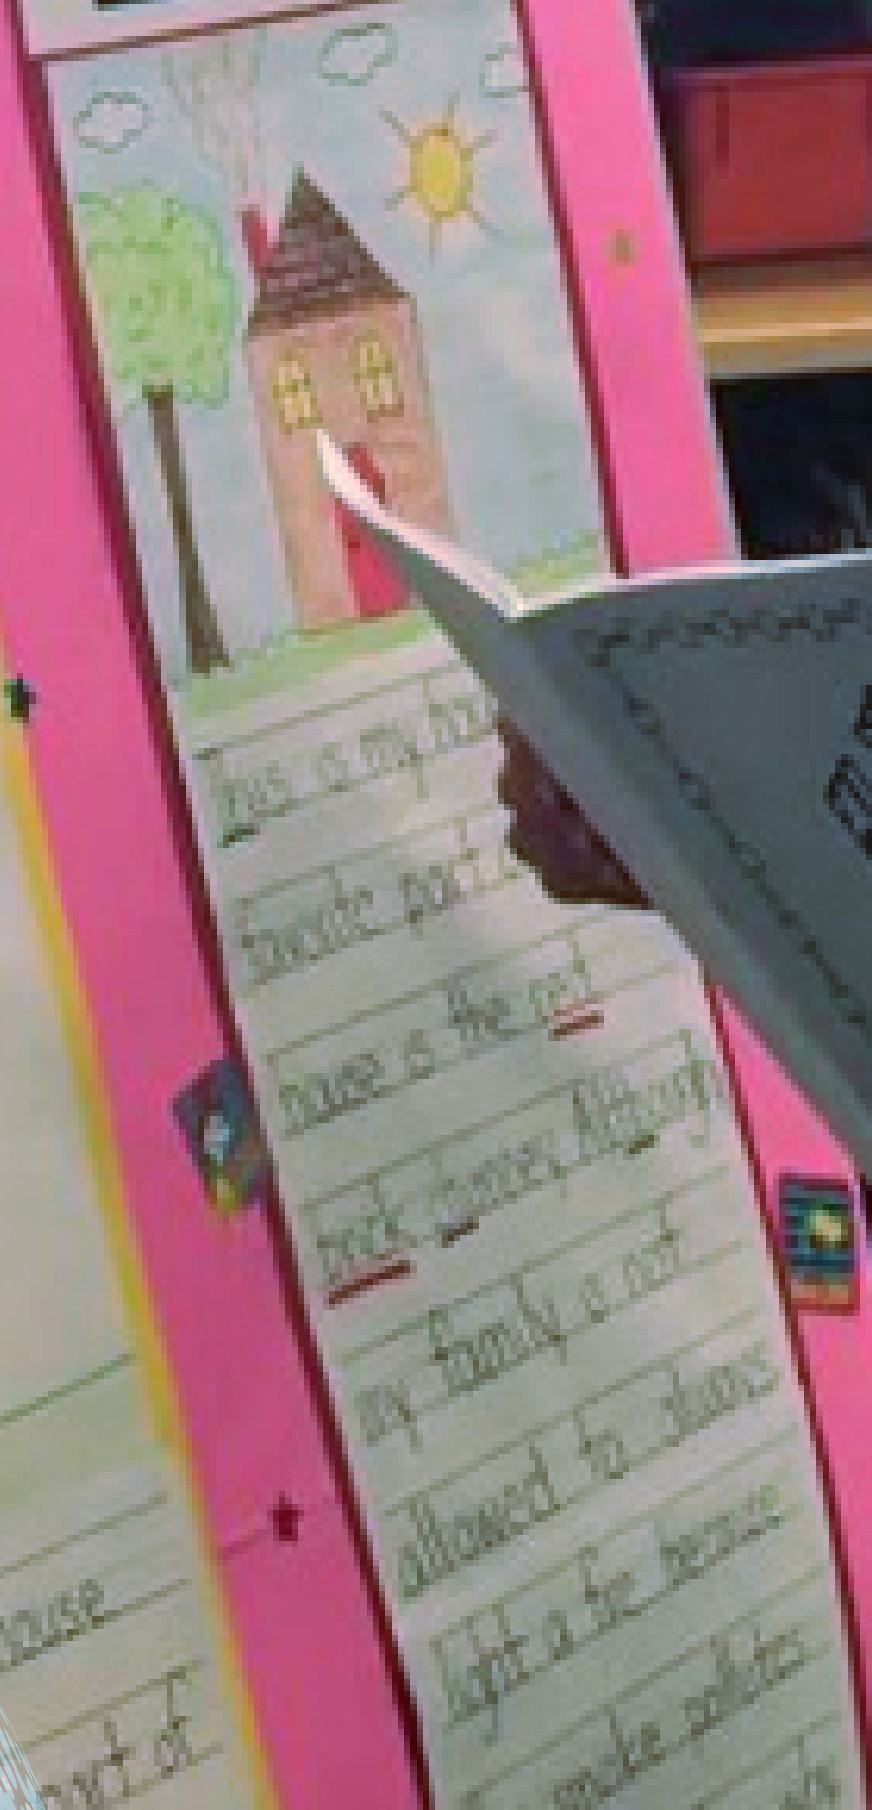 This is my hou
favorite part
house is the red
brick chimney. Although
my family is not
allowed to always
light a fire because
smoke pollutes
house
part of